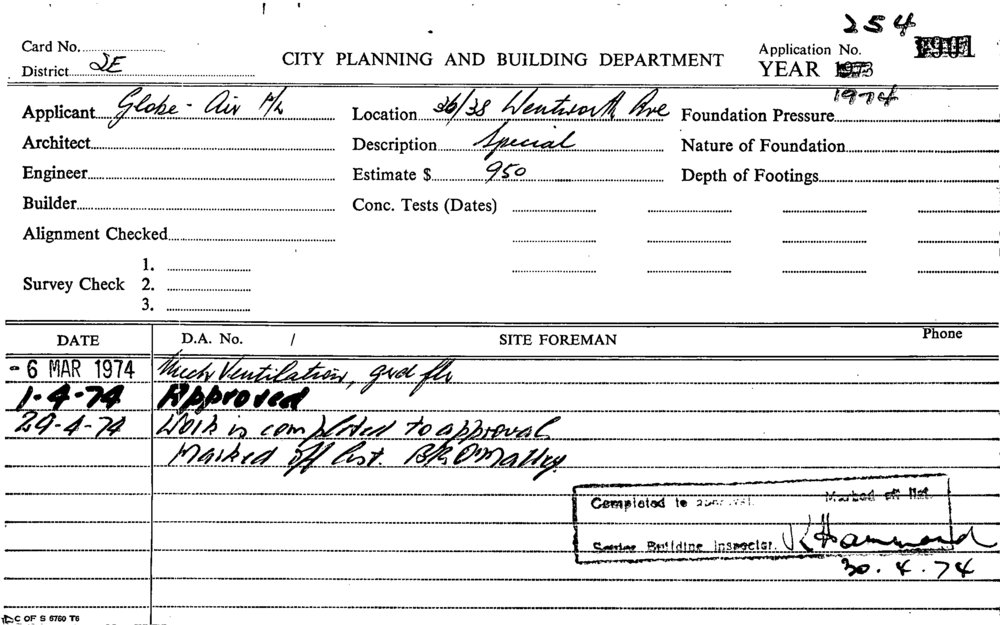 254
Card No.
Application No.
District 2E
CITY PLANNING AND BUILDING DEPARTMENT
YEAR 1973
1974
Applicant Globe-Air P/L
Location 36/38 Wentworth Ave
Foundation Pressure
Architect
Description Special
Nature of Foundation
Engineer
Estimate $ 950
Depth of Footings
Builder
Conc. Tests (Dates)
Alignment Checked
1.
Survey Check 2.
3.
DATE D.A. No. / SITE FOREMAN Phone
-6 MAR 1974 Mech Ventilation, grd flr
1-4-74 Approved
29-4-74 Work is completed to approval
Marked off list. B R O'Malley.
Completed to approval. Marked off list.
Senior Building Inspector. K Hammond
30.4.74
C OF S 6760 T6